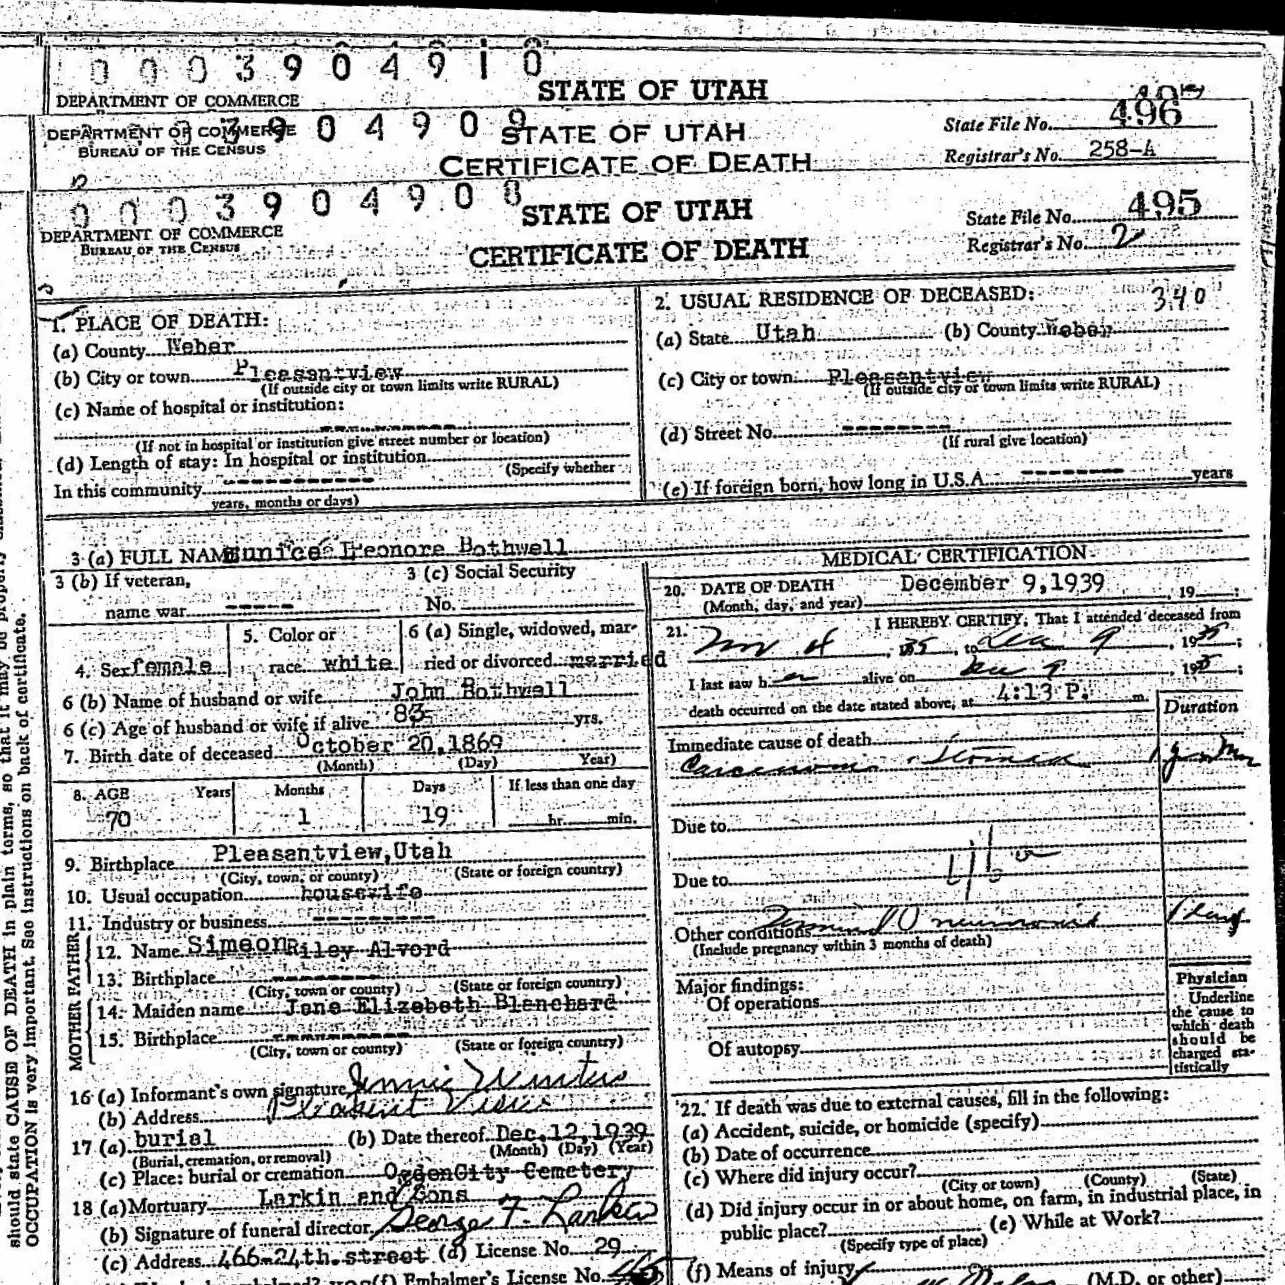 0003904910
STATE OF UTAH
DEPARTMENT OF COMMERCE
3904909
STATE OF UTAH
DEPARTMENT OF COMMERCE
BUREAU OF THE CENSUS
CERTIFICATE OF DEATH
State File No. 496
Registrar's No. 258-A
0003904908
STATE OF UTAH
DEPARTMENT OF COMMERCE
BUREAU OF THE CENSUS
CERTIFICATE OF DEATH
State File No. 495
Registrar's No. 2
1. PLACE OF DEATH:
(a) County Weber
(b) City or town Pleasantview
(If outside city or town limits write RURAL)
(c) Name of hospital or institution:
(If not in hospital or institution give street number or location)
(d) Length of stay: In hospital or institution
(Specify whether
In this community
years, months or days)
2. USUAL RESIDENCE OF DECEASED: 340
(a) State Utah (b) County Weber
(c) City or town Pleasantview
(If outside city or town limits write RURAL)
(d) Street No.
(If rural give location)
(e) If foreign born, how long in U.S.A. years
3 (a) FULL NAME Eunice Leonore Bothwell
3 (b) If veteran,
name war
3 (c) Social Security
No.
4. Sex female
5. Color or
race white
6 (a) Single, widowed, mar-
ried or divorced married
6 (b) Name of husband or wife John Bothwell
6 (c) Age of husband or wife if alive 83 yrs.
7. Birth date of deceased October 20,1869
(Month) (Day) Year)
8. AGE Years Months Days If less than one day
70 1 19 hr. min.
9. Birthplace Pleasantview,Utah
(City, town, or county) (State or foreign country)
10. Usual occupation housewife
11. Industry or business
FATHER
12. Name Simeon Riley Alvord
13. Birthplace
(City, town or county) (State or foreign country)
MOTHER
14. Maiden name Jane Elizabeth Blanchard
15. Birthplace
(City, town or county) (State or foreign country)
16 (a) Informant's own signature Jennie
(b) Address Pleasant View
17 (a) burial (b) Date thereof Dec.12,1939
(Burial, cremation, or removal) (Month) (Day) (Year)
(c) Place: burial or cremation OgdenCity Cemetery
18 (a) Mortuary Larkin and Sons
(b) Signature of funeral director George F. Larkin
(c) Address 466-24th.street (d) License No. 29
(f) Embalmer's License No.
MEDICAL CERTIFICATION
20. DATE OF DEATH December 9,1939
(Month, day, and year) , 19 ;
21. I HEREBY CERTIFY, That I attended deceased from
, 19 , to Dec 9 , 19 ;
I last saw h er alive on Dec 9 , 19 ;
death occurred on the date stated above, at 4:13 P. m.
Duration
Immediate cause of death
Carcinoma Stomach
Due to
Due to
Other conditions Pneumonia
(Include pregnancy within 3 months of death)
Major findings:
Of operations
Of autopsy
Physician
Underline
the cause to
which death
should be
charged sta-
tistically
22. If death was due to external causes, fill in the following:
(a) Accident, suicide, or homicide (specify)
(b) Date of occurrence
(c) Where did injury occur?
(City or town) (County) (State)
(d) Did injury occur in or about home, on farm, in industrial place, in
public place? (e) While at Work?
(Specify type of place)
(f) Means of injury
(M.D. or other)
should state CAUSE OF DEATH in plain terms, so that it may be properly
OCCUPATION is very important. See instructions on back of certificate.